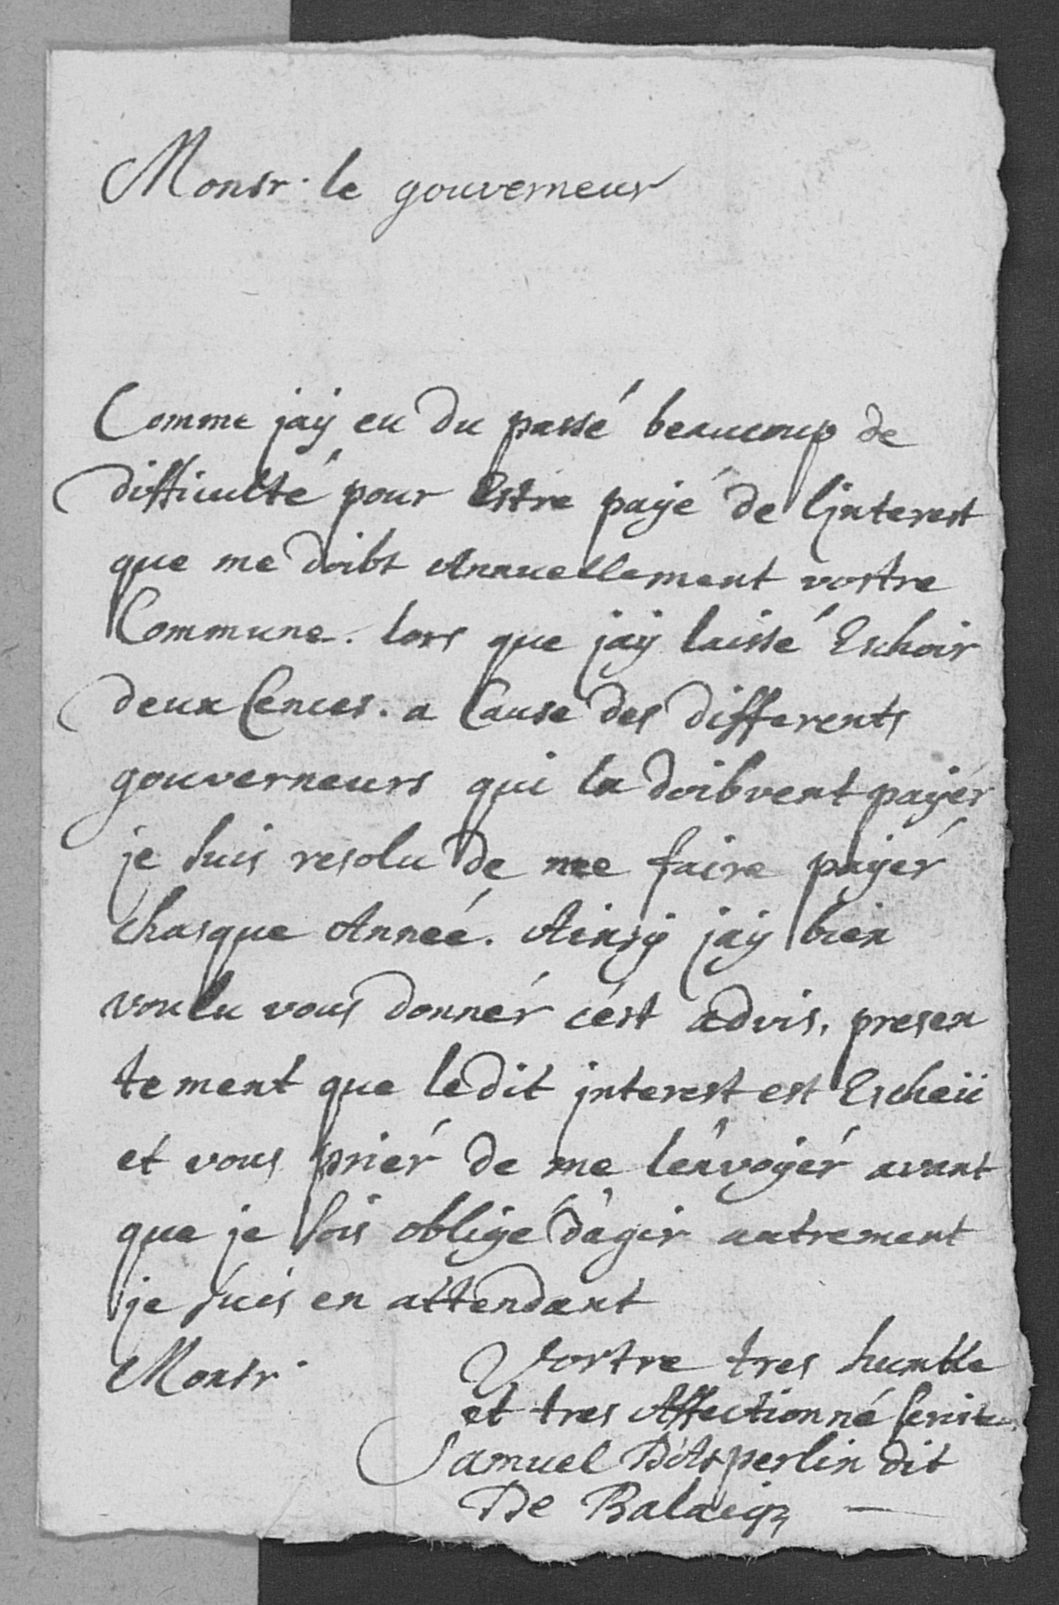 Monsr. le gouverneur
Comme jaÿ eu du passé beaucoup de
difficulté pour Estre paÿé de ljnterest
que me doibt Annuellement vostre
Commune. lors que jaÿ laissé Eschoir
deux Cences. a Cause des differents
gouverneurs qui la doibvent paÿér
je suis resolu de me faire paÿér
chasque Anneé. Ainsÿ jaÿ bien
voulu vous donnér cést advis, presen
tement que ledit jnterest est Escheü
et vous priér de me lénvoÿér avant
que je sois obligé dágir autrement
je suis en attendant
Monsr.
Vostre tres humble
et tres Affectionné
Samuel DAsperlin dit
De Balaigz